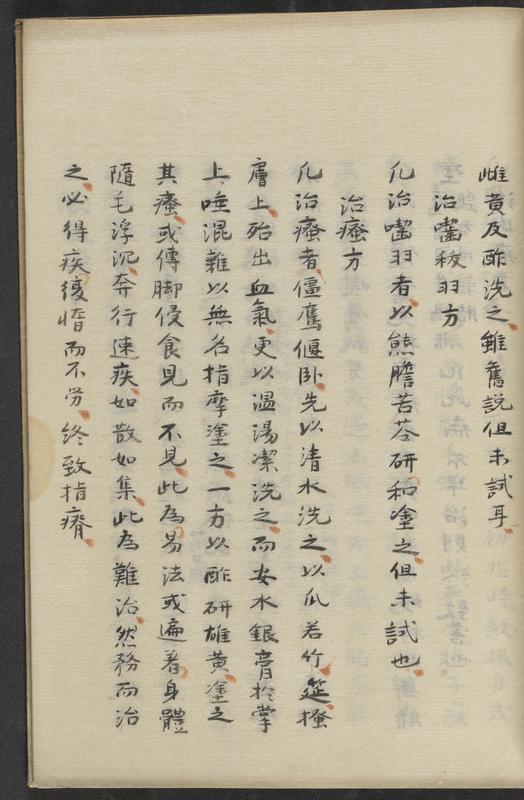 雌黄及酢洗之、雖舊説但未試耳、
治囓羽方
凡治囓羽者、以熊膽苦苓研和塗之、但未試也、
治瘙方
凡治瘙者、僵鷹偃卧、先以清水洗之、以爪若竹筳搔
膚上、殆出血氣、更以温湯潔洗之、而安水銀膏於掌
上、唾混雜以無名指摩塗之、一方以酢研雄黄、塗之
其瘙或傅脚侵食見而不見、此為易法或遍著身體
隨毛浮沉、奔行速疾、如散如集、此為難治、然務而治
之、必得疾、緩惰而不労、終致指瘠、